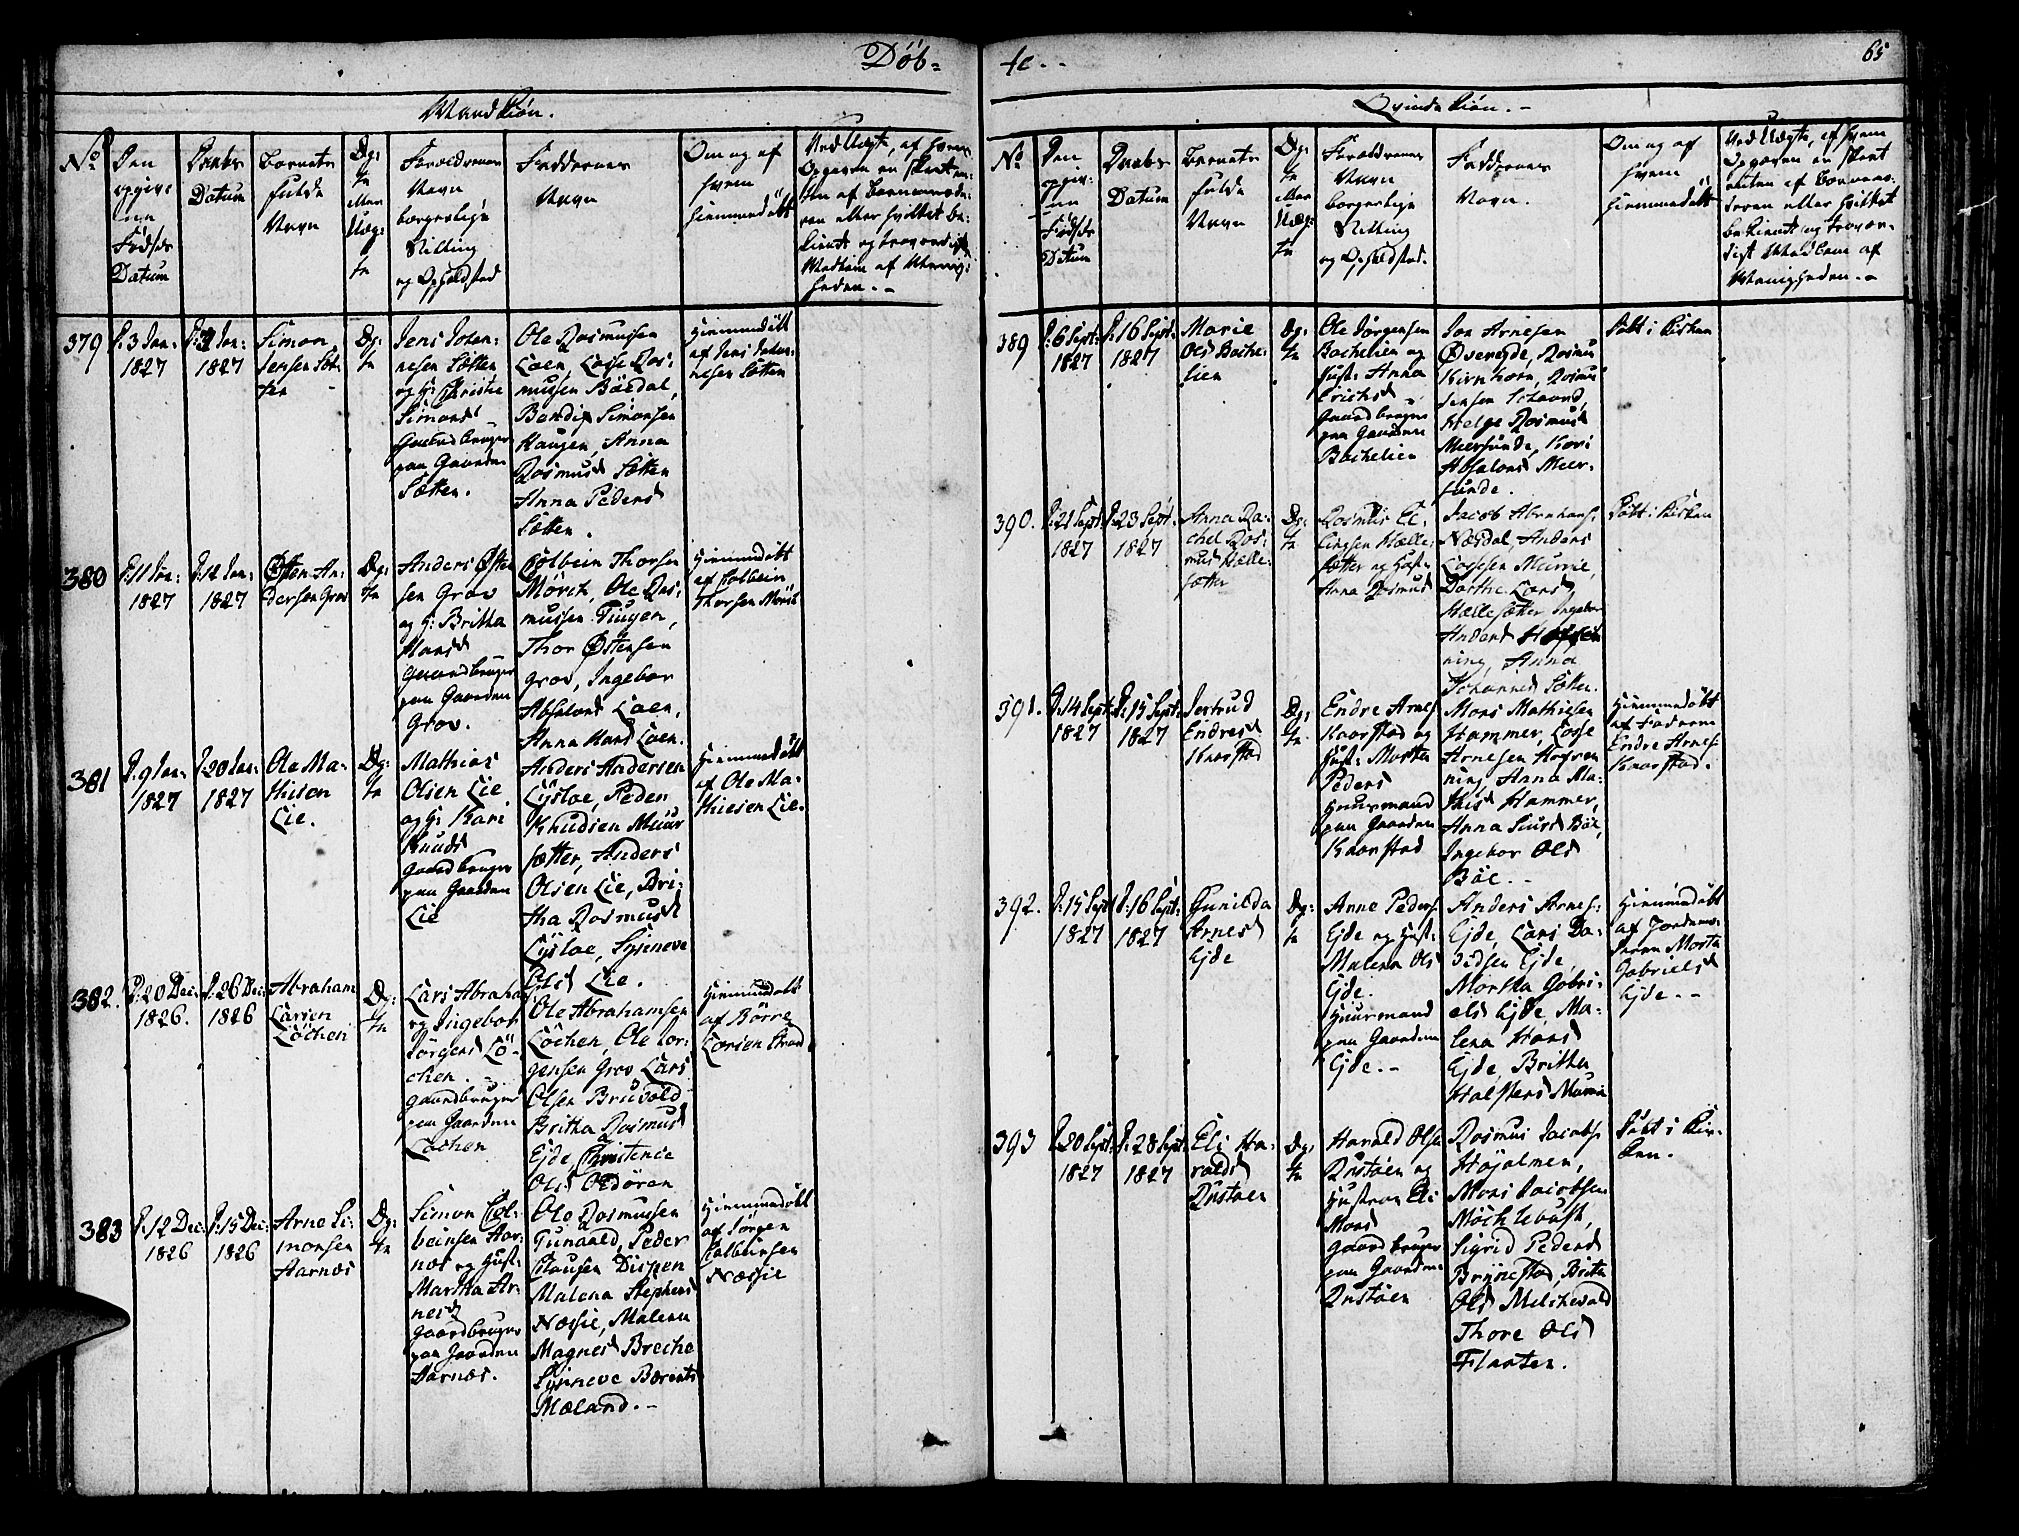 Døb=
Mandkiøn.
No
Den
opgiv:
ne
Fødsels
Datum
Daabs
Datum
Barnets
fulde
Navn
Æg:
te
eller
Uæg:
te
Forældrenes
Navn
borgerlige
Stilling
og Opholdsted
Faddernes
Navn
Om og af
hvem
hiemmedøbt
379
D: 3 Jan:
1827
1827
Simon
Jensen Sæt-
ten
Æg:
te
Jens Johan-
nesen Sætten
og H: Christie
Simonsd
Gaardbruger
paa Gaarden
Sætten.
Ole Rasmusen
Loen, Lasse Ras-
musen Bødal,
Bendix Simonsen
Haugen, Anna
Rasmusd Sætten
Anna Pedersd
Sætten.
Hiemmedøbt
af Jens Johan-
nesen Sætten
380
D: 11 Jan:
1827
D: 12 Jan:
1827
Østen An-
dersen Grov
Æg:
te
Anders Østen
sen Grov
og H: Britha
Hansd
Gaardbruger
paa Gaarden
Grov.
Colbein Thorsen
Mørch, Ole Ras-
musen Tiugen,
Thor Østensen
Grov, Ingebor
Absalonsd Loen,
Anna Hansd Loen.
Hiemmedøbt
af Colbein
Thorsen Mørch
381
D: 9 Jan:
1827
D: 20 Jan:
1827
Ole Ma-
thiesen
Lie.
Æg:
te
Mathias
Olsen Lie
og H: Kari
Knudsd
Gaardbruger
paa Gaarden
Lie
Anders Andersen
Lysloe, Peder
Knudsen Muur
sætter, Anders
Olsen Lie, Bri-
tha Rasmusd
Lysloe, Synneve
Olsd Lie.
Hiemmedøbt
af Ole Ma-
thiesen Lie.
382.
D: 20 Dec:
1826.
D: 26 Dec:
1826
Abraham
Larsen
Løchen
Æg:
te
Lars Abraha
og Ingebor
Jørgensd Lø-
chen.
Gaardbruger
paa Gaarden
Løchen
Ole Abrahamsen
Løchen, Ole Jør-
gensen Grov Lars
Olsen Bruvold
Britha Rasmusd
Ejde, Christence
Olsd Oldøren
Hiemmedøbt
af Børre
Larsen Strand
383
D: 12 Dec:
1826
D: 15 Dec:
1826
Arne Si-
monsen
Aarnæs
Æg:
te
Simon Col-
beinsen Aar-
næs og Hust:
Martha Ar-
nesd
Gaardbruger
paa Gaarden
Aarnæs.
Ole Rasmusen
Tunaald, Peder
Clausen Dispen
Malena Stephensd
Næssie, Malena
Magnesd Breche
Synneve Berentsd
Mæland.-
Hiemmedøbt
af Jørgen
Colbeinsen
Næssie
te.-
65
Qvindekiøn.-
No
Den
opgiv:
ne
Fødsels
Datum
Daabs
Datum
Barnets
fulde
Navn
Æg:
te
eller
Uæg:
te
Forældrenes
Navn
borgerlige
Stilling
og Opholdsted.
Faddernes
Navn.
Om og af
hvem
hiemmedøbt
389
D: 6 Sept:
1827
D: 16 Sept:
1827
Marie
Olsd Bache-
lien
Æg:
te
Ole Jørgensen
Bachelien og
Hust: Anna
Erichsd
Gaardbruger
paa Gaarden
Bachelien
Jon Arnesen
Øvereyde, Rasmus
Jensen Strand,
Helge Rasmusd
Meersunde, Kari
Absalonsd Meer-
sunde.
Døbt i Kirken
390.
D: 21 Sept:
1827
D: 23 Sept:
1827
Anna Ra-
chel Ras-
musd Helle-
sætter
Æg:
te
Rasmus El-
lingsen Helle-
sætter og Hust:
Anna Rasmusd
Jacob Abrahams:
Næsdal, Anders
Lassesen Murrie,
Dorthe Larsd
Hellesætter Ingebor
Andersd
ning, Anna
Johannesd Sætter.
Døbt i Kirken
391.
D: 14 Sept:
1827
D: 15 Sept:
1827
Jertrud
Endresd
Kaarstad
Æg:
te
Endre Arnes:
Kaarstad og
Hust: Martha
Pedersd
Huusmand
paa Gaarden
Kaarstad
Mons Mathiesen
Hammer, Lasse
Arnesen Hogren
ning, Anna Ma-
thisd Hammer,
Anna Siursd Bøe,
Ingebor Olsd
Bøe.-
Hiemmedøbt
af Faderen
Endre Arnes:
Kaarstad.
392.
D: 15 Sept:
1827
D: 16 Sept:
1827
Gunilda
Arnesd
Ejde
Æg:
te
Arne Peders:
Ejde og Hust:
Malena Olsd
Ejde.
Huusmand
paa Gaarden
Ejde.-
Anders Arnes:
Ejde, Lars Da-
vidsen Ejde,
Martha Gabri-
elsd Ejde, Ma-
lena Hansd
Ejde, Britha
Halstensd Murrie
Hiemmedøbt
af Jordemo-
deren Marta
Gabrielsd
Ejde.-
393
D: 20 Sept:
1827
D: 28 Sept:
1827
Eli Ha-
raldsd
Rustøen
Æg:
te
Harald Olsen
Rustøen og
Hustrue Eli
Monsd
Gaardbruger
paa Gaarden
Rustøen
Rasmus Jacobs:
Højolmen,
Mons Jacobsen
Møchlebust,
Sigrid Pedersd
Brynestad, Britha
Olsd Melchevold
Thore Olsd
Flaaten.
Døbt i Kir-
ken.